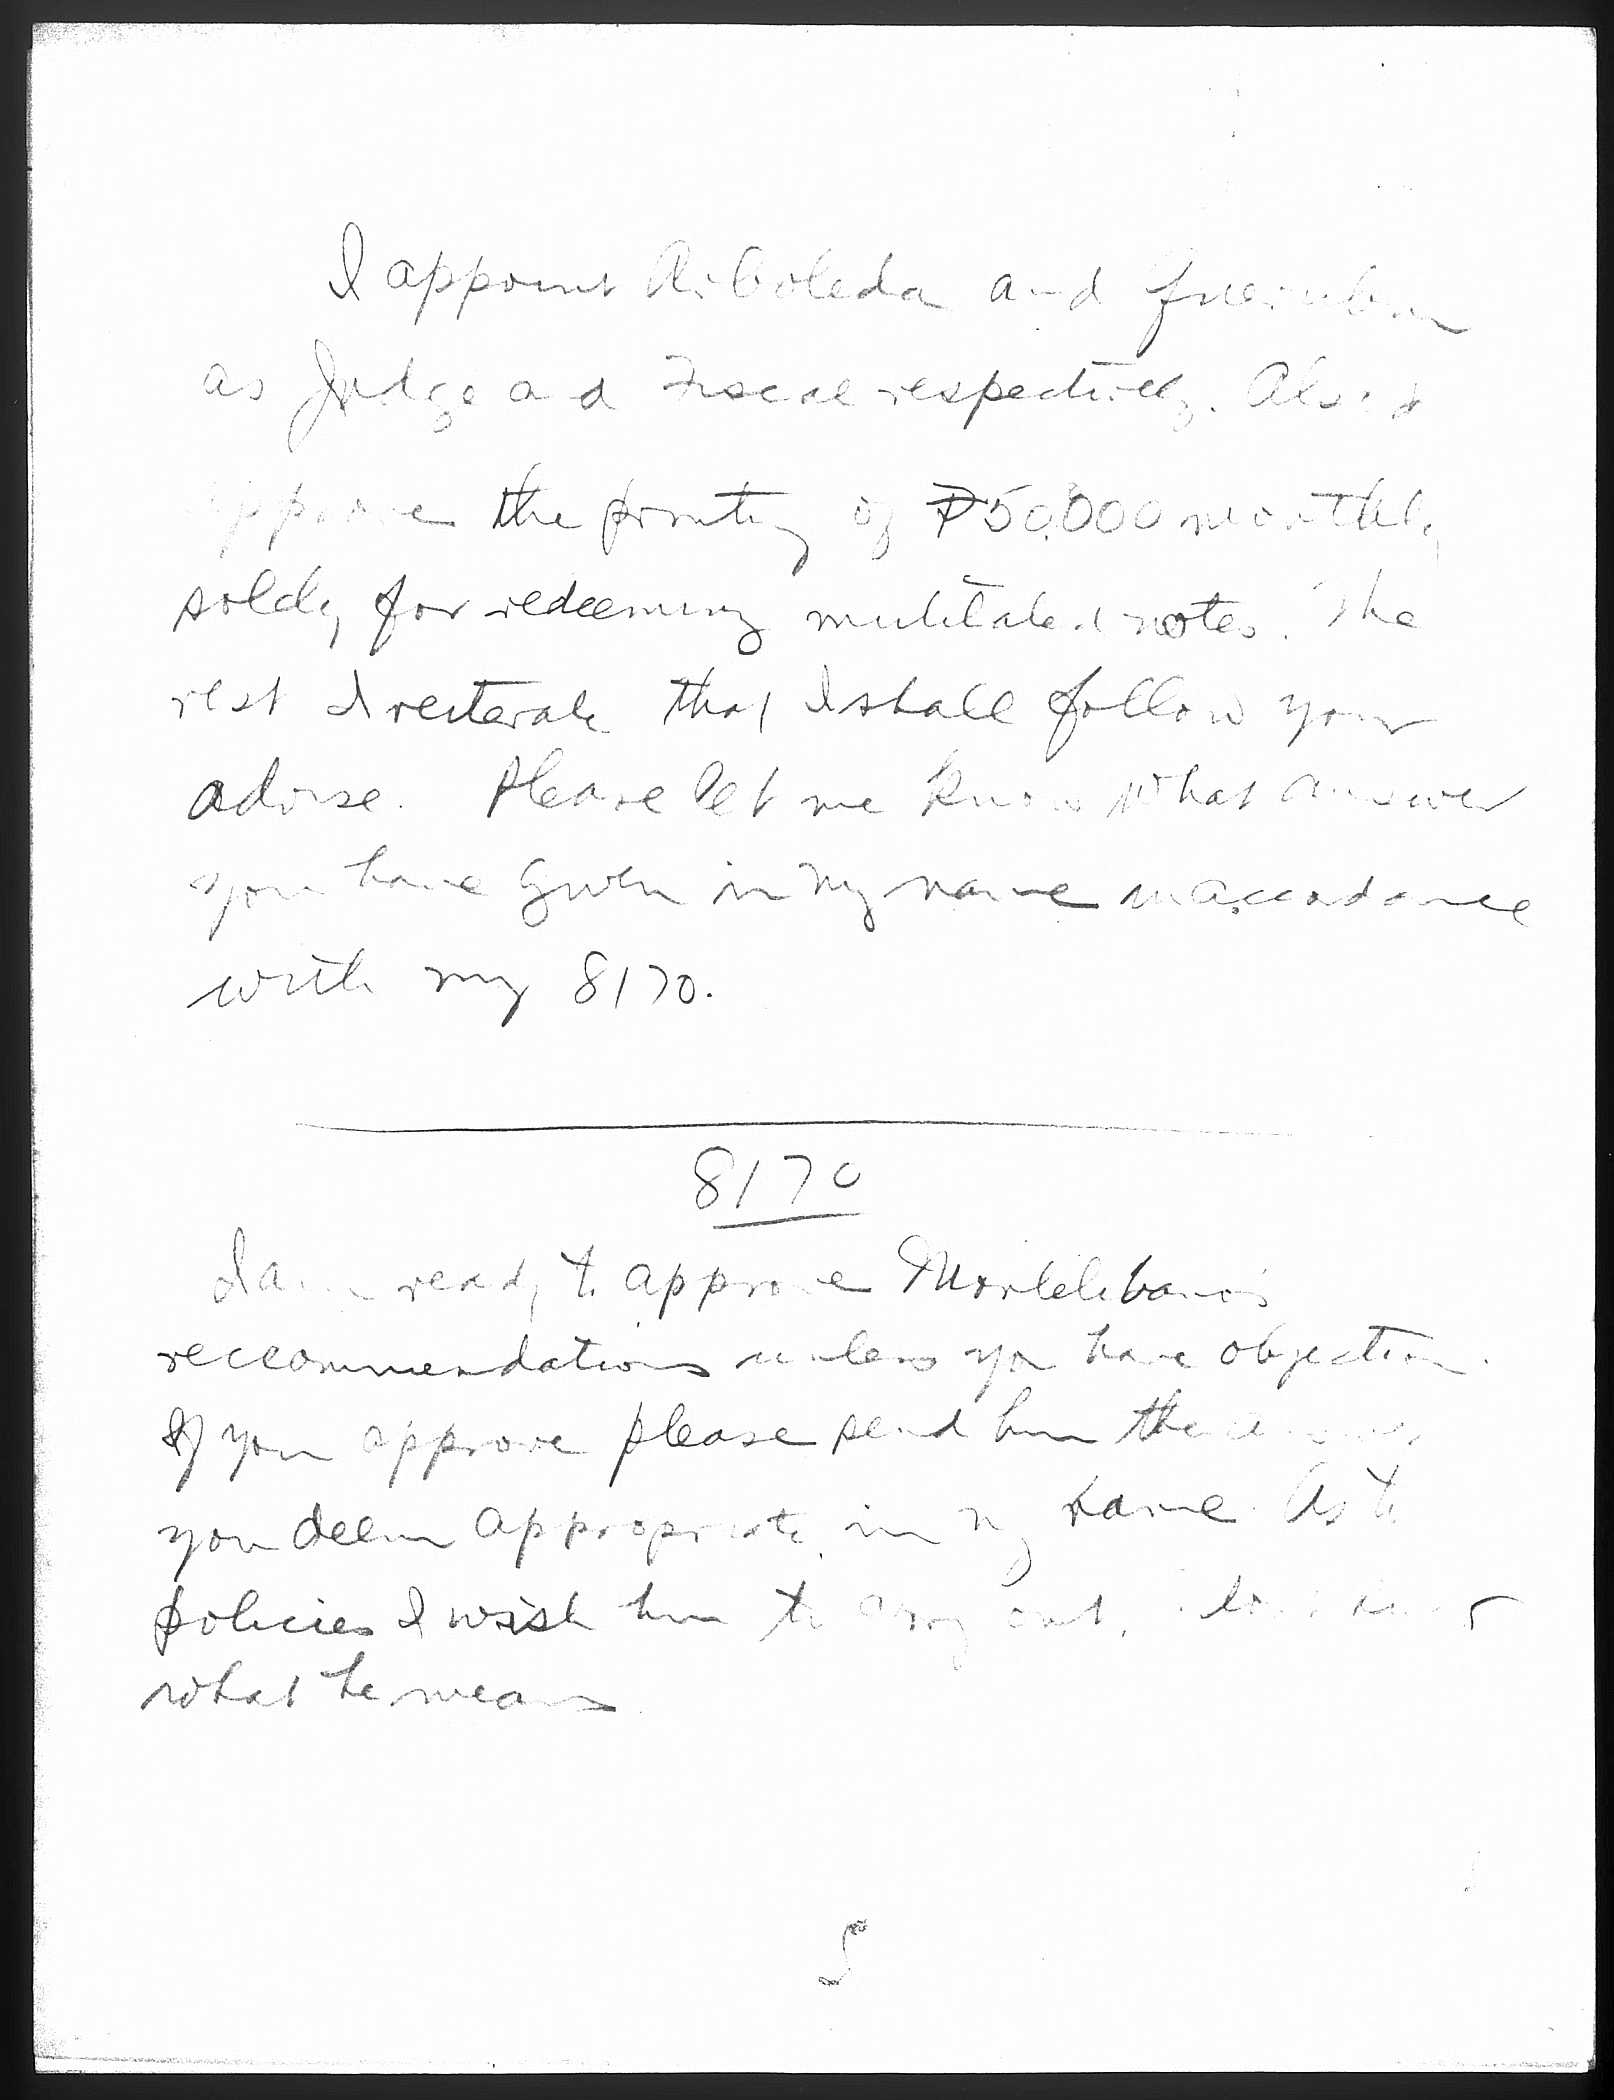 I appoint Arboleda and
as Judge and Fiscal respectively. Also I
approve the printing of ₱50,000 monthly
solely for redeeming mutilated notes. The
rest I reiterate that I shall follow your
advise. Please let me know what answer
you have given in my name in accordance
with my 8170.
8170
I am ready to approve Montelibano's
reccommendations unless you have objection.
If you approve please send him the answer
you deem appropriate in my name. As to
policies I wish him to carry out,
what he means
5